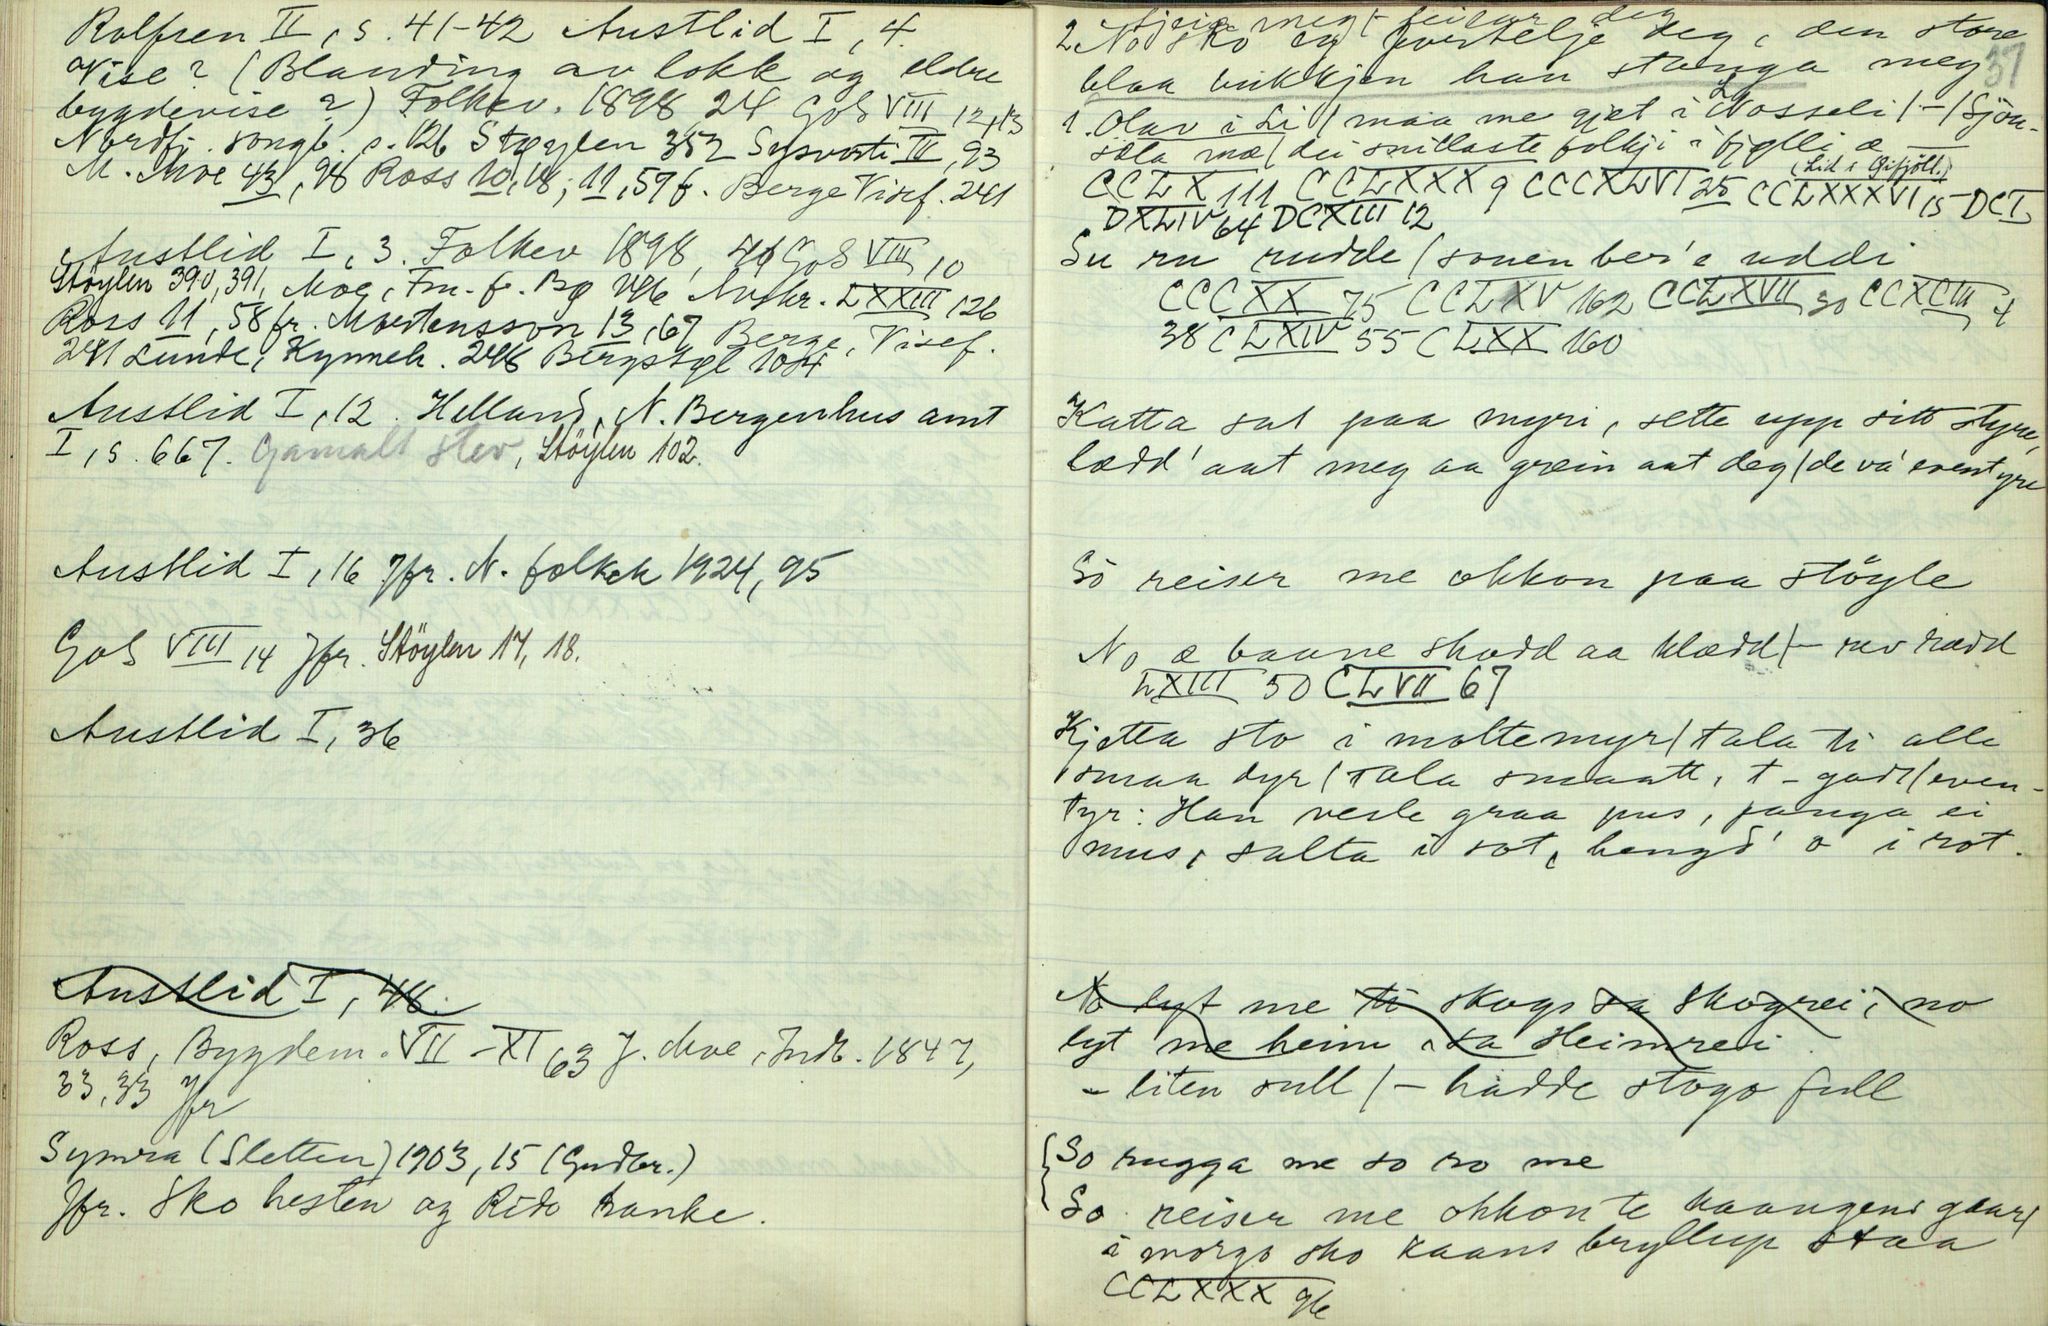 Rolfsen II, s. 41-42 Austlid I, 4.
Vise? (Blanding av lokk og eldre
bygdevise?) Folkev. 1898, 24 GoS VIII 12, 13
Nordfj. songb. s. 126 Støylen 352 Sysvorti II, 93
M. Moe 43, 98 Ross 10, 18; 11, 59 f. Berge Visef. 241
Austlid I, 3. Folkev 1898, 46 GoS VIII 10
Støylen 390, 391, Moe, Fm. f. Bg 496 Avskr. LXXIII 126
Ross 11, 58 fr. Mortensson 13, 67 Berge, Visef.
241 Lunde, Kynneh. 248 Bergstøl 104
Austlid I, 12. Helland, N. Bergenhus amt
I, s. 667. Gamalt stev, Støylen 102.
Austlid I, 16 Jfr. N. folkek 1924, 95
GoS VIII 14 Jfr. Støylen 17, 18.
Austlid I, 36
Austlid I, 48.
Ross, Bygdem. VII-XI 63 J. Moe, Indb. 1847,
33, 33 Jfr
Symra (Sletten) 1903, 15 (Gudbr.)
Jfr. Sko hesten og Rido Ranke.
37
2. No sko eg fortelje deg, den store
blaa bukkjen han stanga meg
1. Olav i Li / maa me gjet i Nosseli / - / Sjön-
söla mæ / dei snillaste folkji i fjølli æ
(Lid i Øifjöll.)
CCLX 111 CCLXXX 9 CCCXLVI 25 CCLXXXVI 15 DCI
DXLIV 64 DCXIII 12
Su ru rudde / sonen ber'e uddi
CCCXX 75 CCLXV 162 CCLXVII 30 CCXCIII 4
38 CLXIV 55 CLXX 160
Katta sat paa myri, sette upp sitt styre,
lædd' aat meg aa grein aat deg / de va' eventyre
So reiser me okkon paa støyle
No æ baane skodd aa klædd / - rev rædd
LXIII 50 CLVII 67
Kjetta sto i moltemyr / tala ti alle
smaa dyr / tala smaatt, t - godt / even-
tyr: Han vesle graa pus, fanga ei
mus, salta i sot, hengd' o i rot.
No lyt me ti skogs sa Skogrei, no
lyt me heim, sa Heimrei
- liten sull / - hadde stogo full
So rugga me so ro me
So reiser me okkon te kaangens gaar /
i morgo sko kaans bryllup staa
CCLXXX 96